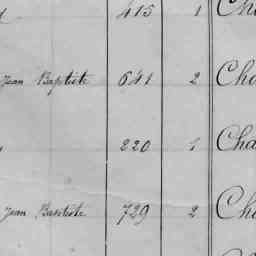 y 415 1 Cha
Jean Baptiste 641 2 Cha
y 220 1 Cha
Jean Baptiste 729 2 Cha